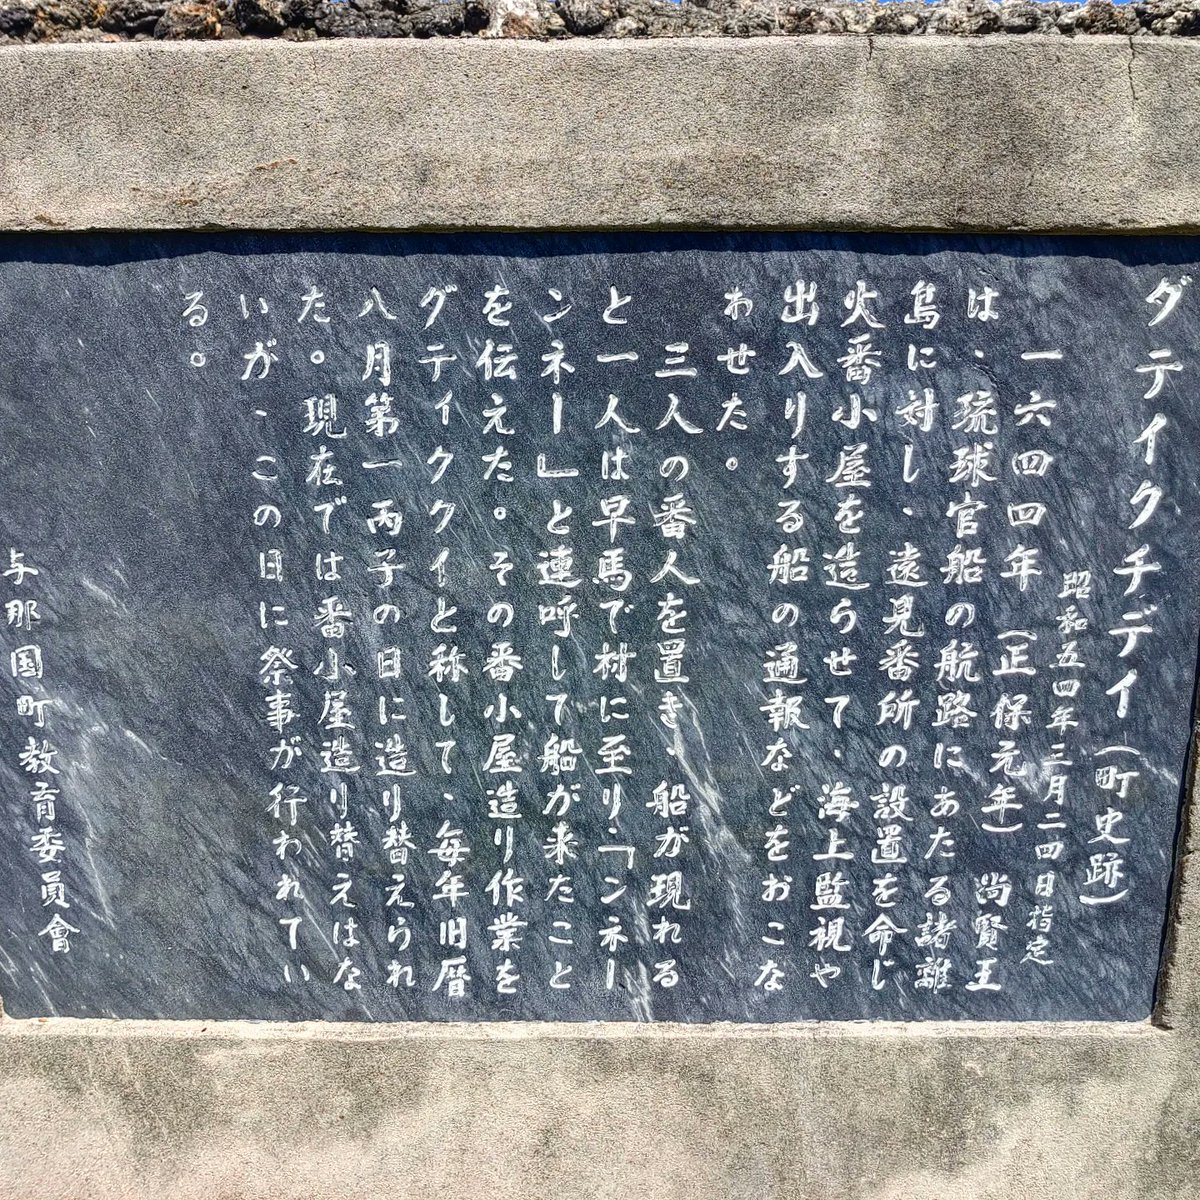 ダテイクチデイ(町史跡)
昭和五四年三月二四日指定
一六四四年(正保元年)尚賢王
は、琉球官船の航路にあたる諸離
島に対し、遠見番所の設置を命じ
火番小屋を造らせて、海上監視や
出入りする船の通報などをおこな
わせた。
三人の番人を置き、船が現れる
と一人は早馬で村に至り「ンネー
ンネー」と連呼して船が来たこと
を伝えた。その番小屋造り作業を
グテイククイと称して、毎年旧暦
八月第一丙子の日に造り替えられ
た。現在では番小屋造り替えはな
いが、この日に祭事が行われてい
る。
与那国町教育委員會